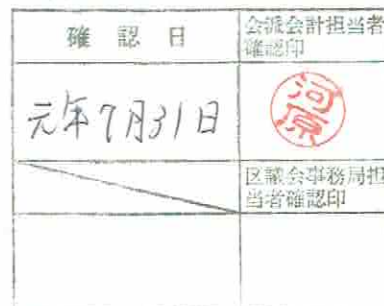 確認日
会派会計担当者
確認印
元年7月31日
河原
区議会事務局担
当者確認印